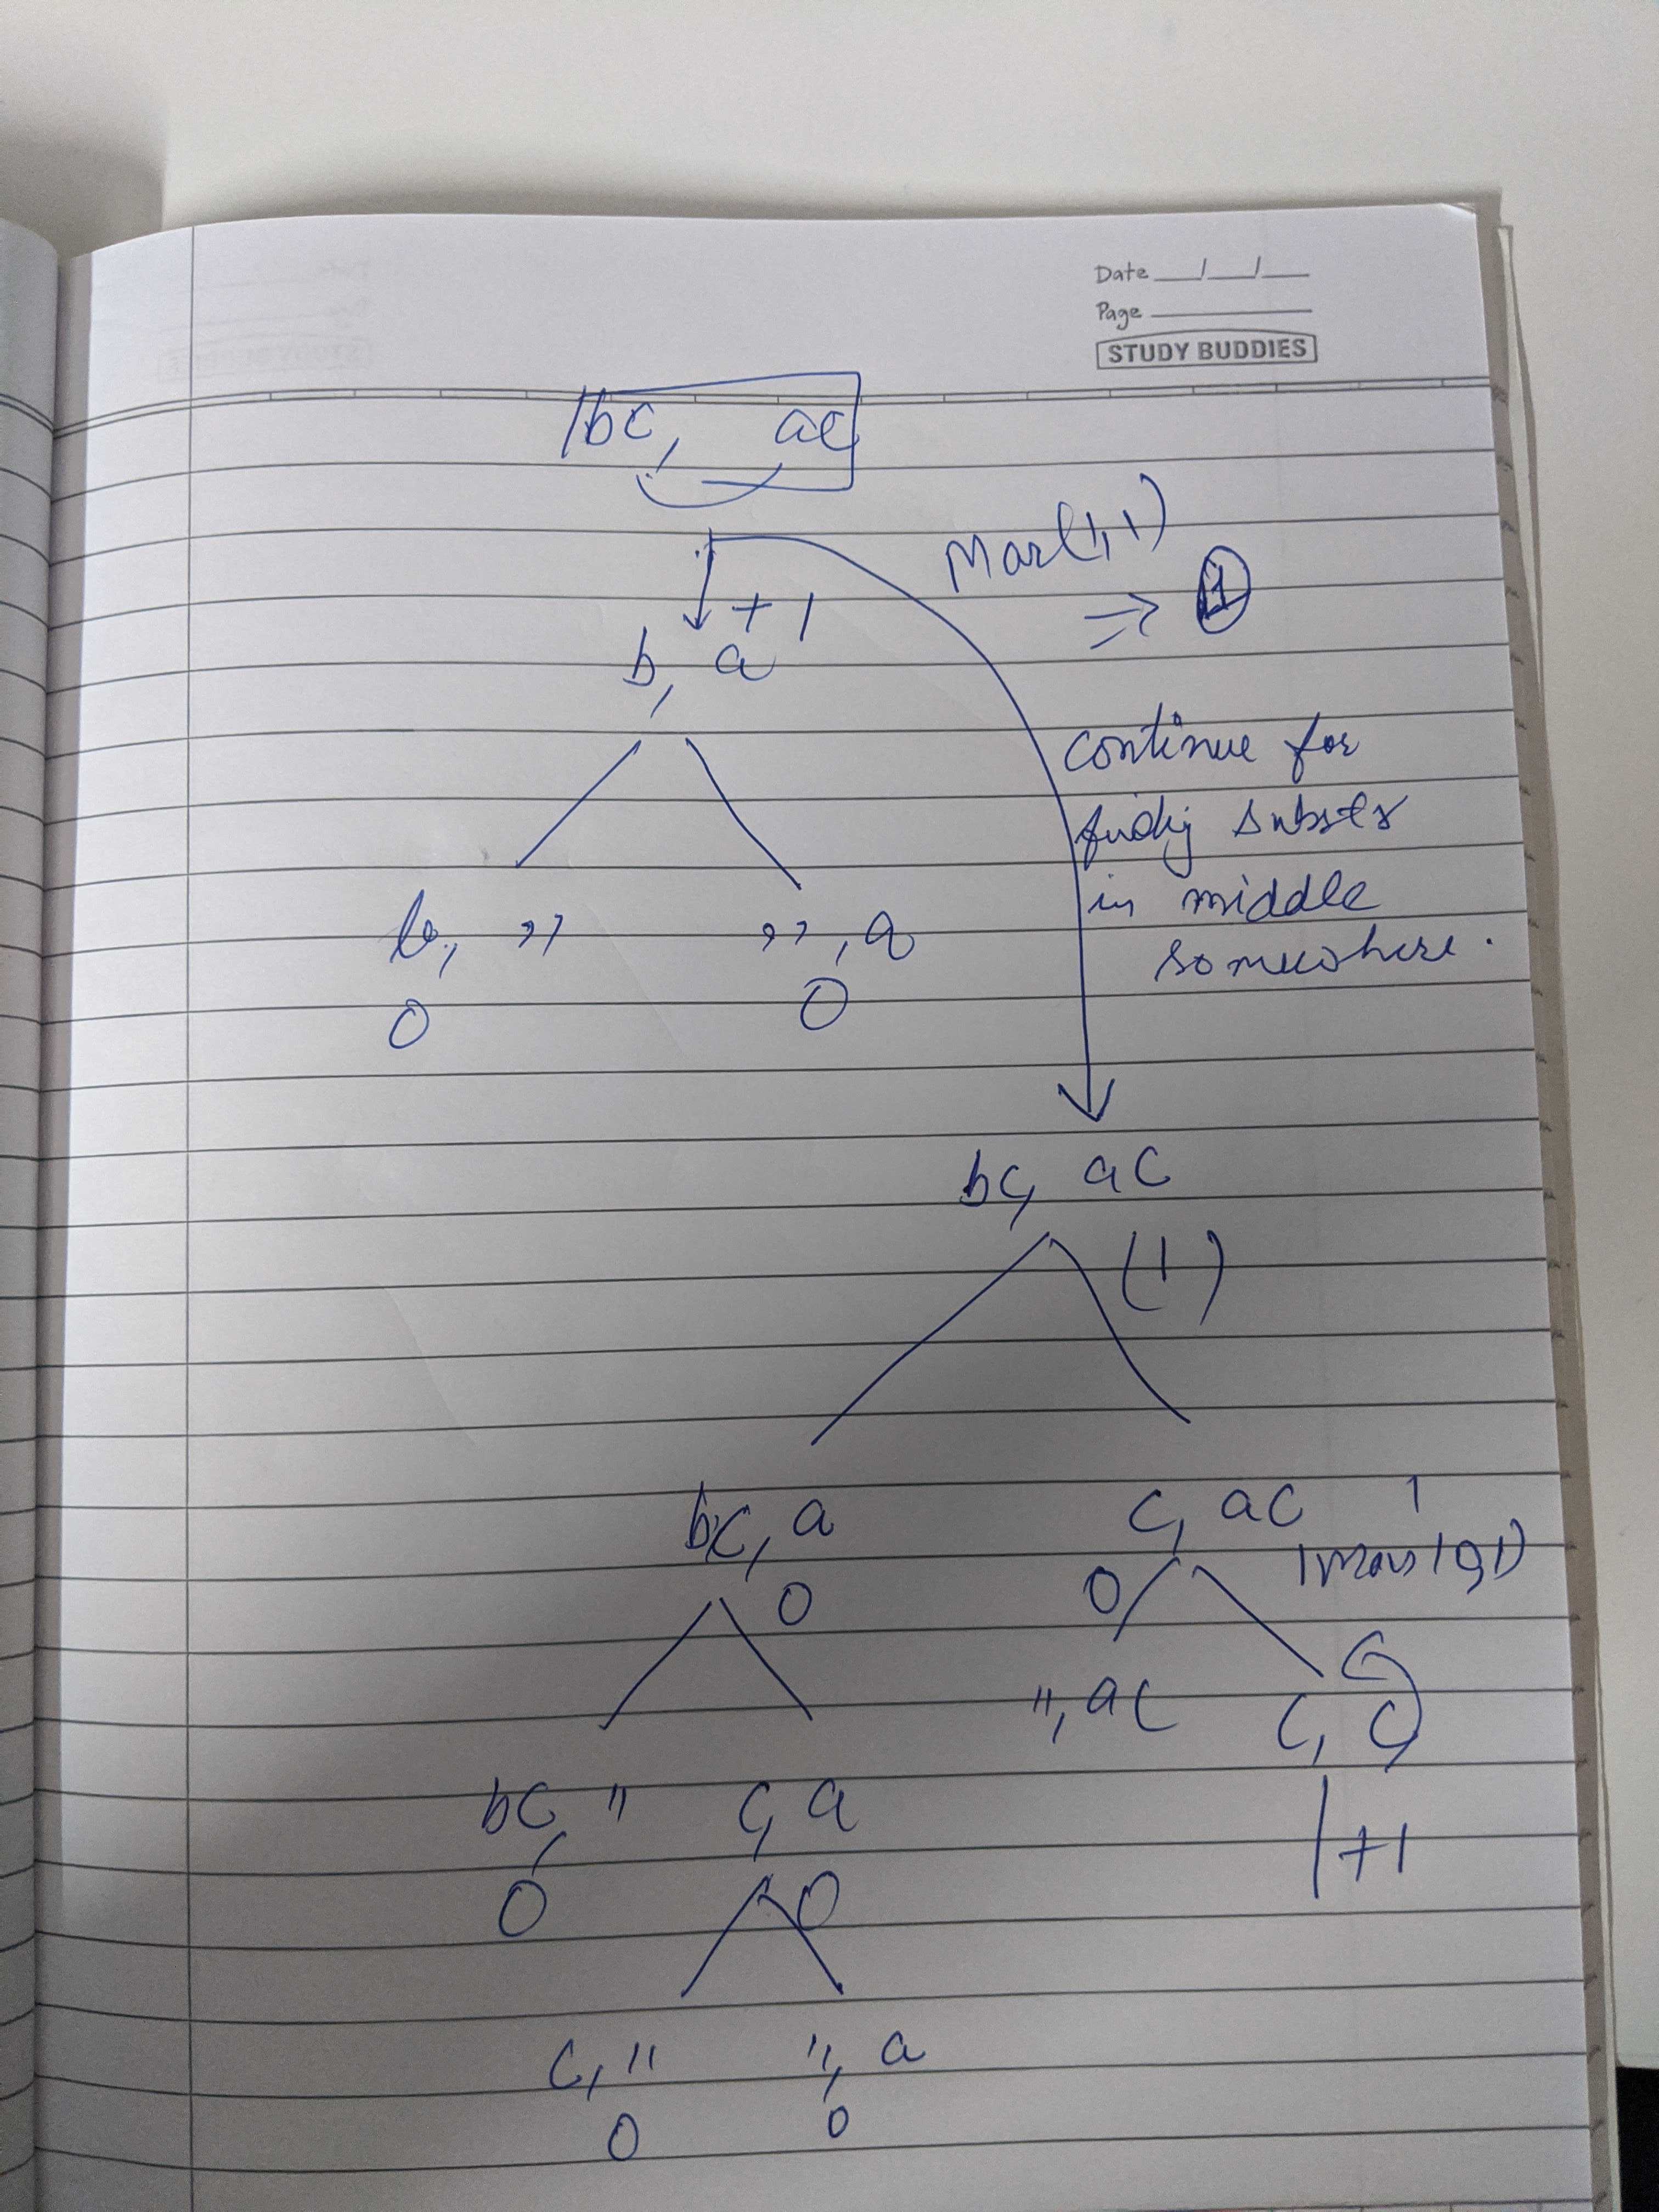 Date __/__/__
Page ______
STUDY BUDDIES
bc, ac
Max(1,1)
⇒ 1
+1
b, a
continue for
finding substr
in middle
somewhere.
b, ""
"", a
0
0
bc, ac
(1)
bc, a
0
c, ac 1
0
"", ac
c, c
+1
bc, ""
0
c, a
0
c, ""
0
"", a
0